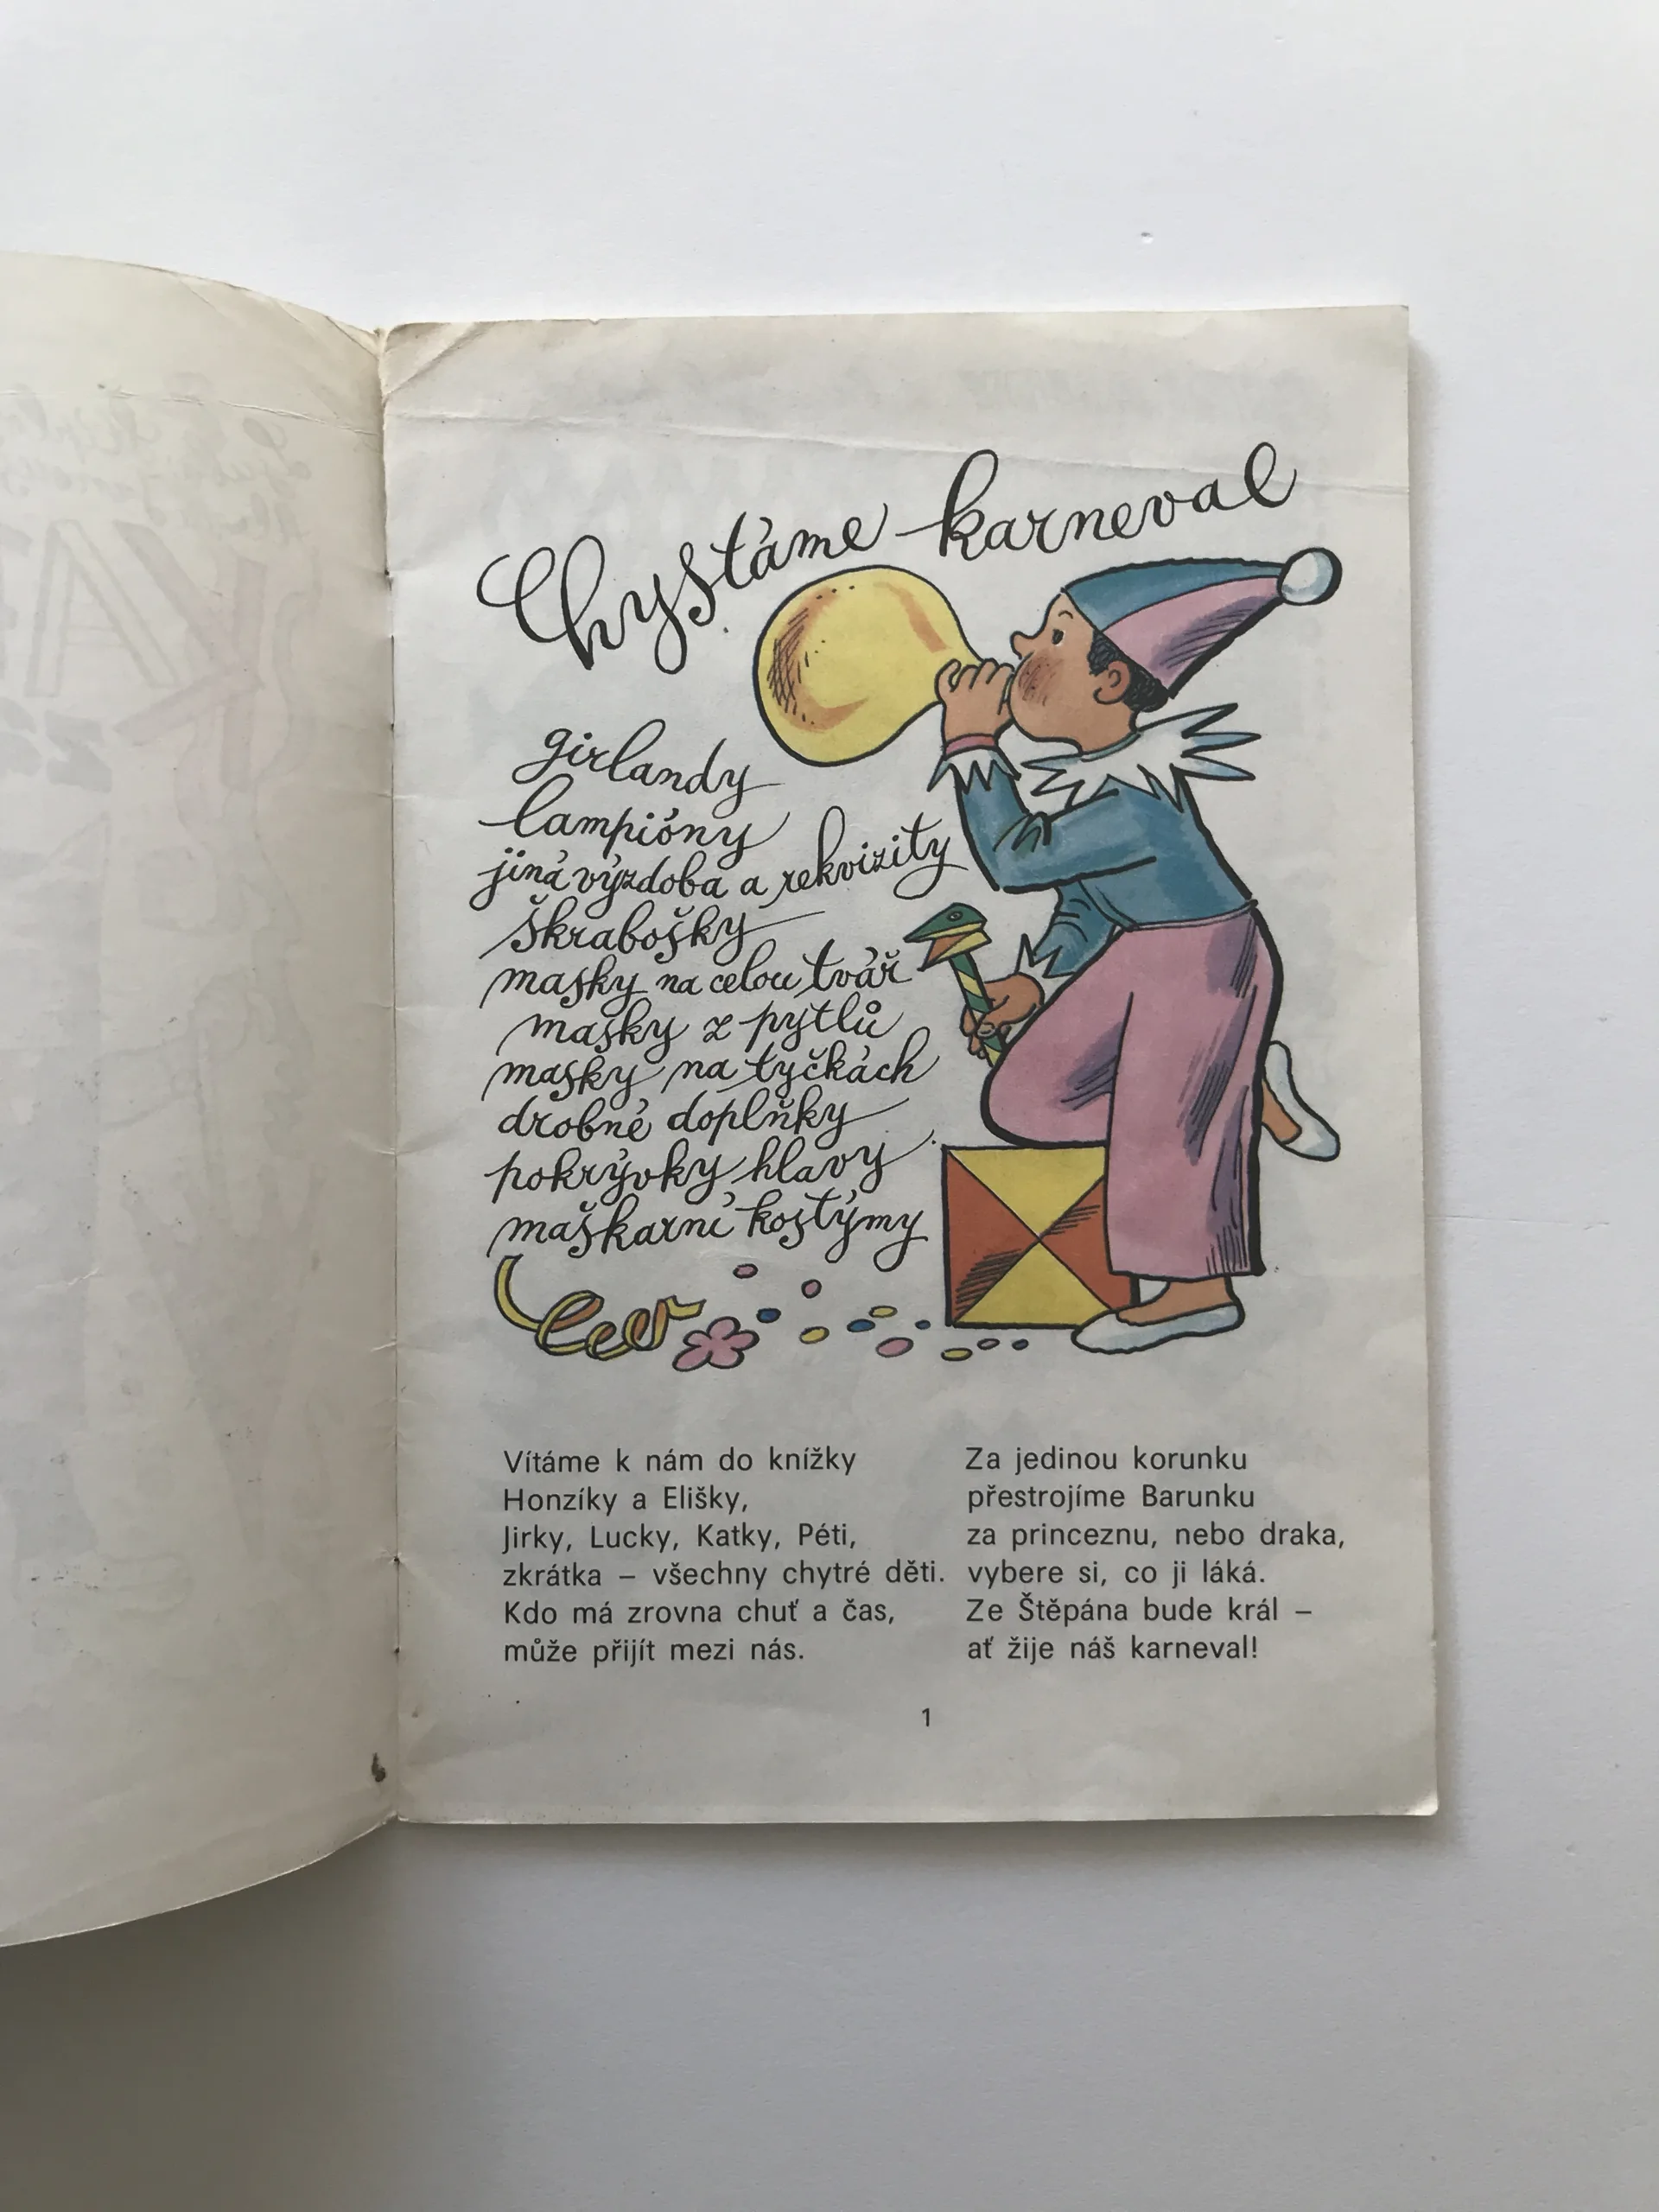 Chystáme karneval
girlandy
lampióny
jiná výzdoba a rekvizity
škrabošky
masky na celou tvář
masky z pytlů
masky na tyčkách
drobné doplňky
pokrývky hlavy
maškarní kostýmy
Vítáme k nám do knížky
Honzíky a Elišky,
Jirky, Lucky, Katky, Péti,
zkrátka – všechny chytré děti.
Kdo má zrovna chuť a čas,
může přijít mezi nás.
Za jedinou korunku
přestrojíme Barunku
za princeznu, nebo draka,
vybere si, co ji láká.
Ze Štěpána bude král –
ať žije náš karneval!
1